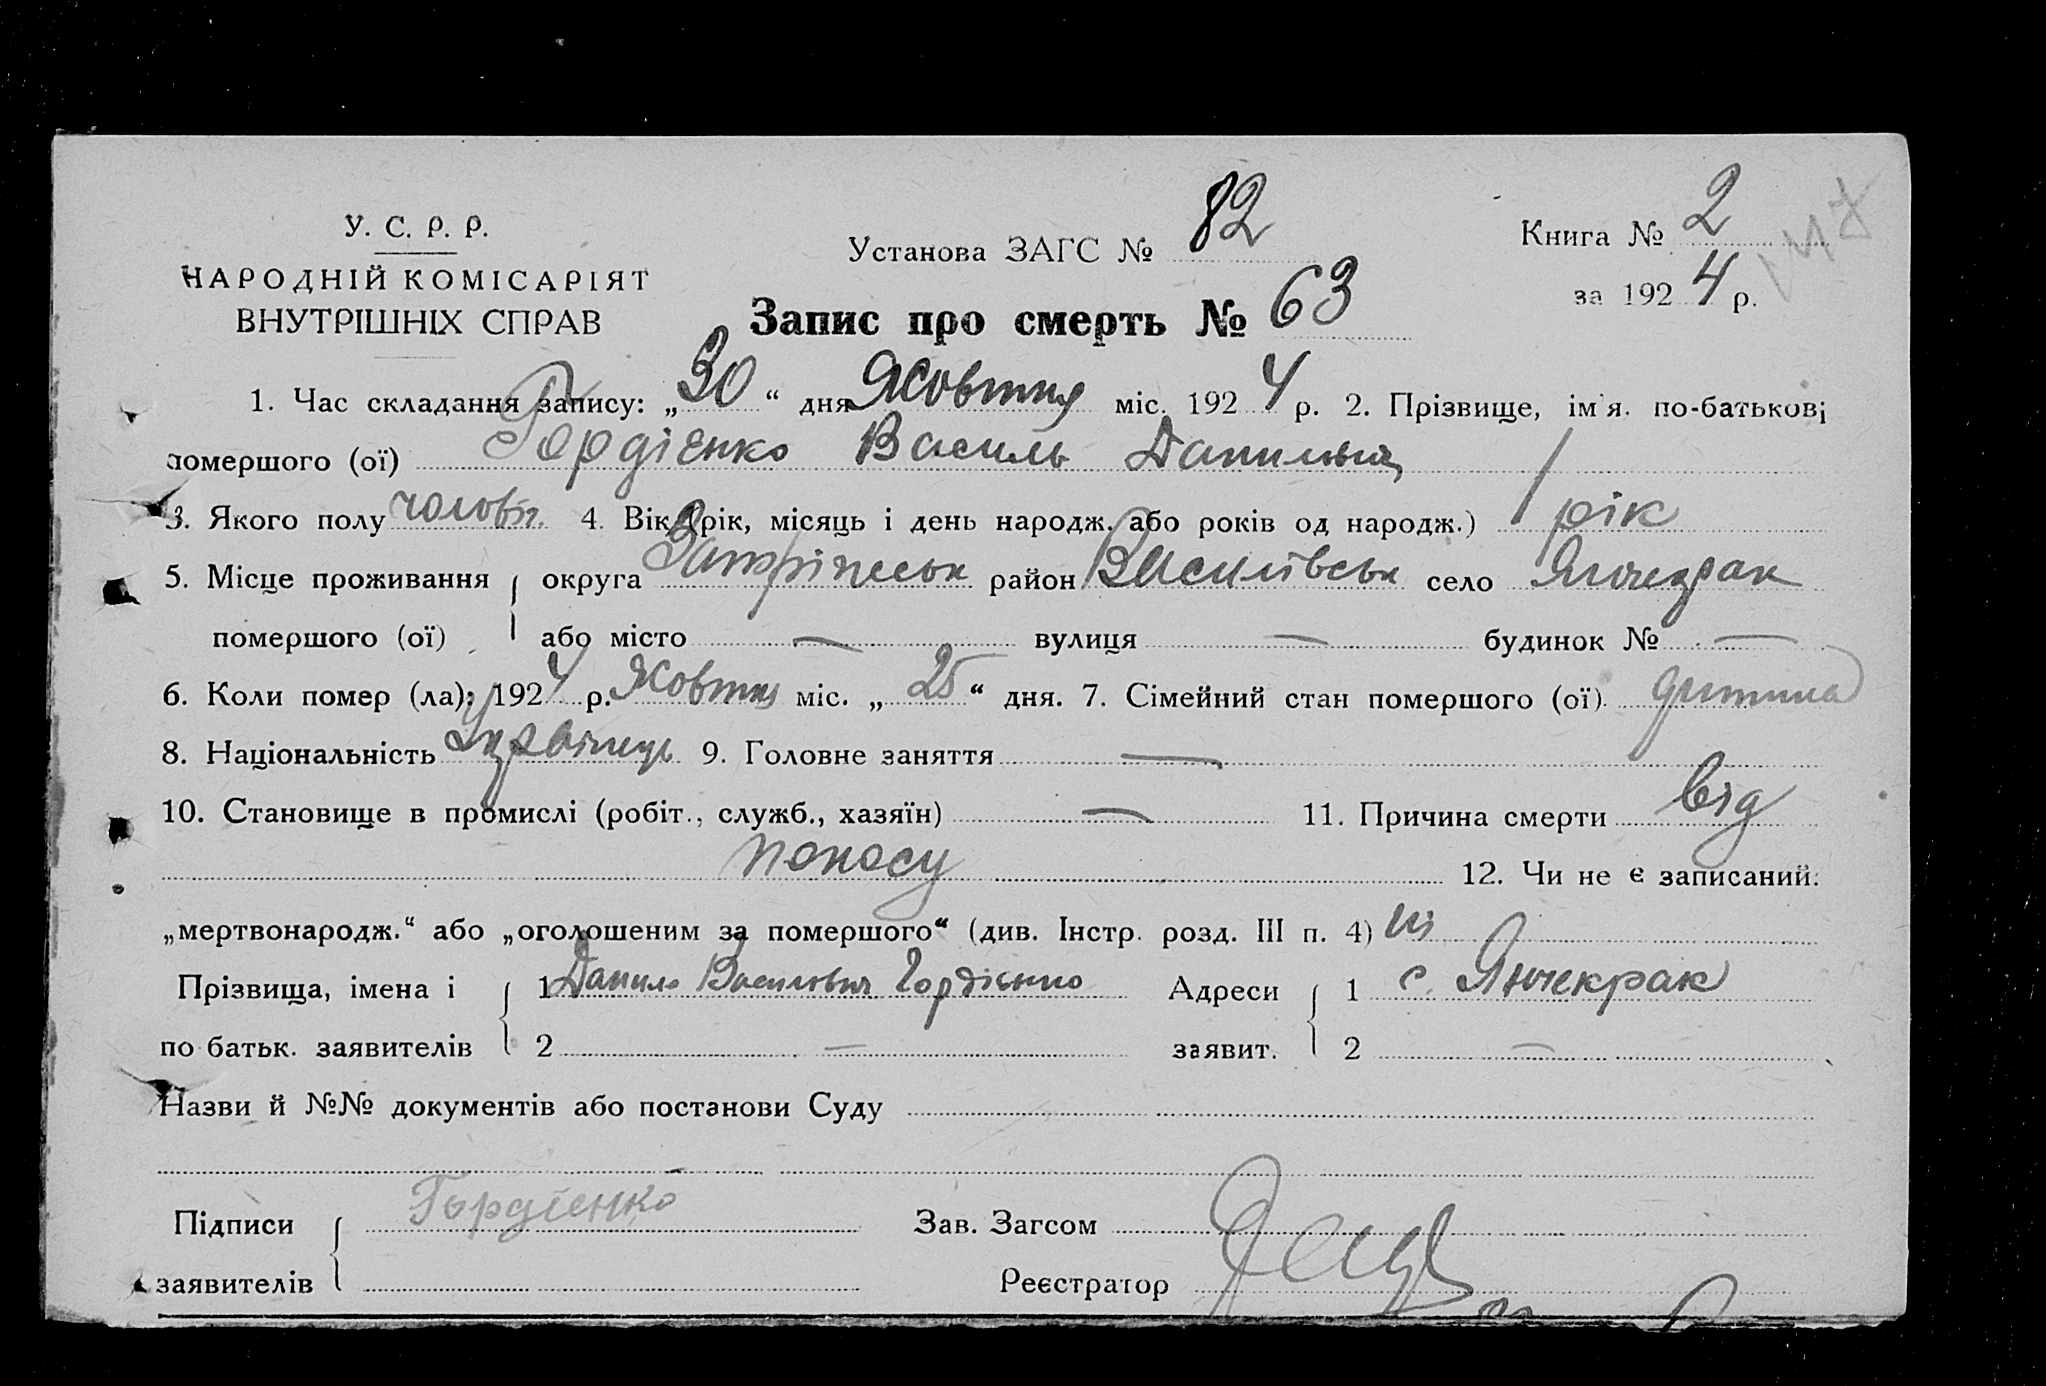 У. С. Р. Р.
НАРОДНІЙ КОМІСАРІЯТ
ВНУТРІШНІХ СПРАВ
Установа ЗАГС № 82
Книга № 2
за 1924 р.
Запис про смерть № 63
1. Час складання запису: „30“ дня Жовтня міс. 1924 р. 2. Прізвище, ім'я. по-батькові
помершого (ої) Гордієнко Василь Данилович
3. Якого полу чоловіч. 4. Вік (рік, місяць і день народж. або років од народж.) 1 рік
5. Місце проживання округа Запоріжськ район Василівськ село Янчекрак
помершого (ої) або місто — вулиця — будинок № —
6. Коли помер (ла): 1924 р. Жовтня міс. „25“ дня. 7. Сімейний стан помершого (ої) дитина
8. Національність Українець 9. Головне заняття —
10. Становище в промислі (робіт., служб., хазяїн) — 11. Причина смерти від
поносу 12. Чи не є записаний:
„мертвонародж.“ або „оголошеним за помершого“ (див. Інстр. розд. III п. 4) ні
Прізвища, імена і 1 Данило Василович Гордієнко Адреси 1 с. Янчекрак
по батьк. заявителів 2 — заявит. 2 —
Назви й №№ документів або постанови Суду
Підписи Гордієнко Зав. Загсом
заявителів Реєстратор